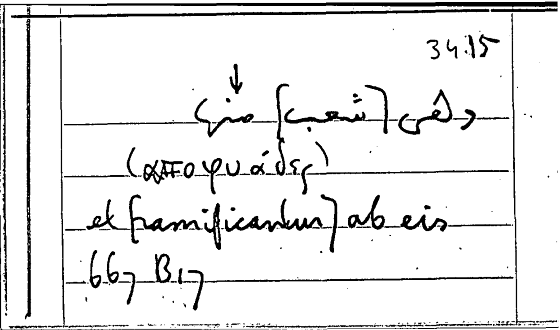 34.15
وهى [شعب] منها
(αποφυάδες)
et [ramificantur] ab eis
667 B17